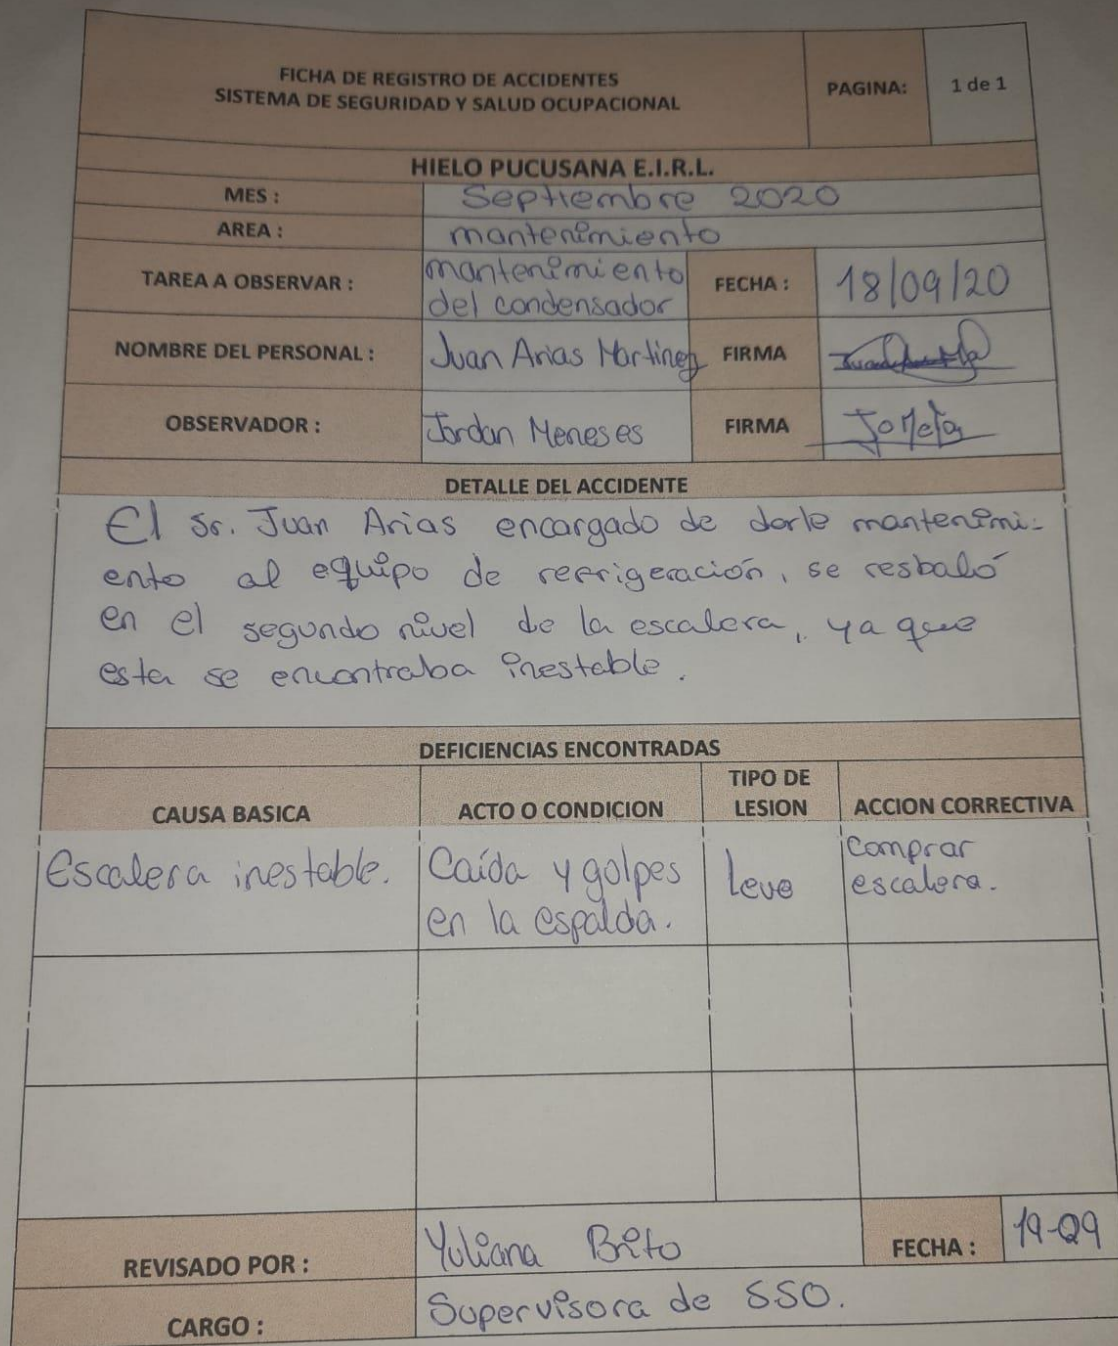 FICHA DE REGISTRO DE ACCIDENTES
SISTEMA DE SEGURIDAD Y SALUD OCUPACIONAL
PAGINA: 1 de 1
HIELO PUCUSANA E.I.R.L.
MES : Septiembre 2020
AREA : mantenimiento
TAREA A OBSERVAR : mantenimiento
del condensador
FECHA : 18/09/20
NOMBRE DEL PERSONAL : Juan Arias Martinez FIRMA
OBSERVADOR : Jordan Meneses FIRMA
DETALLE DEL ACCIDENTE
El Sr. Juan Arias encargado de darle mantenimi-
ento al equipo de refrigeración, se resbaló
en el segundo nivel de la escalera, ya que
esta se encontraba inestable.
DEFICIENCIAS ENCONTRADAS
CAUSA BASICA
ACTO O CONDICION
TIPO DE
LESION
ACCION CORRECTIVA
Escalera inestable.
Caída y golpes
en la espalda.
Leve
Comprar
escalera.
REVISADO POR : Yuliana Brito FECHA : 19-09
CARGO : Supervisora de SSO.